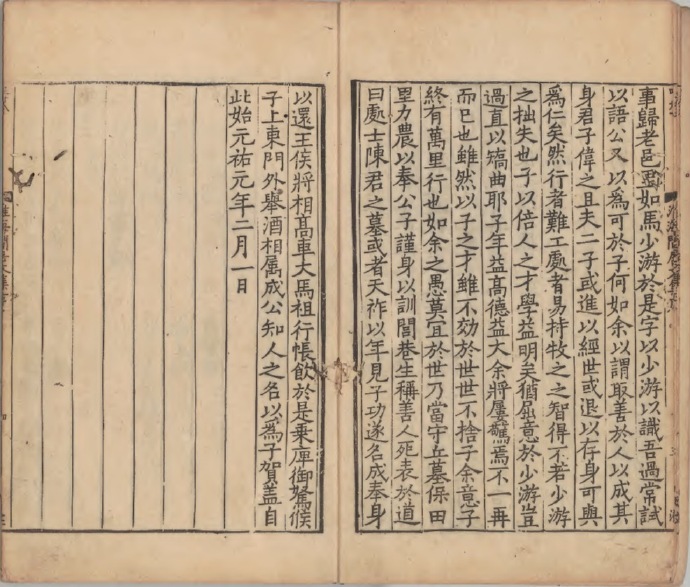 事歸老邑里如馬少游於是字以少游以識吾過常試
以語公又以為可於子何如余以謂取善於人以成其
身君子偉之且夫二子或進以經世或退以存身可與
為仁矣然行者難工處者易持牧之之智得不若少游
之拙失也子以倍人之才學益明矣猶屈意於少游豈
過直以矯曲耶子年益髙德益大余將屢驚焉不一再
而已也雖然以子之才雖不効於世世不捨子余意子
終有萬里行也如余之愚莫宜於世乃當守丘墓保田
里力農以奉公子謹身以訓閭巷生稱善人死表於道
曰處士陳君之墓或者天祚以年見子功遂名成奉身
以還王侯將相髙車大馬祖行帳飲於是乗庳御駑候
子上東門外舉酒相属成公知人之名以為子賀盖自
此始元祐元年二月一日